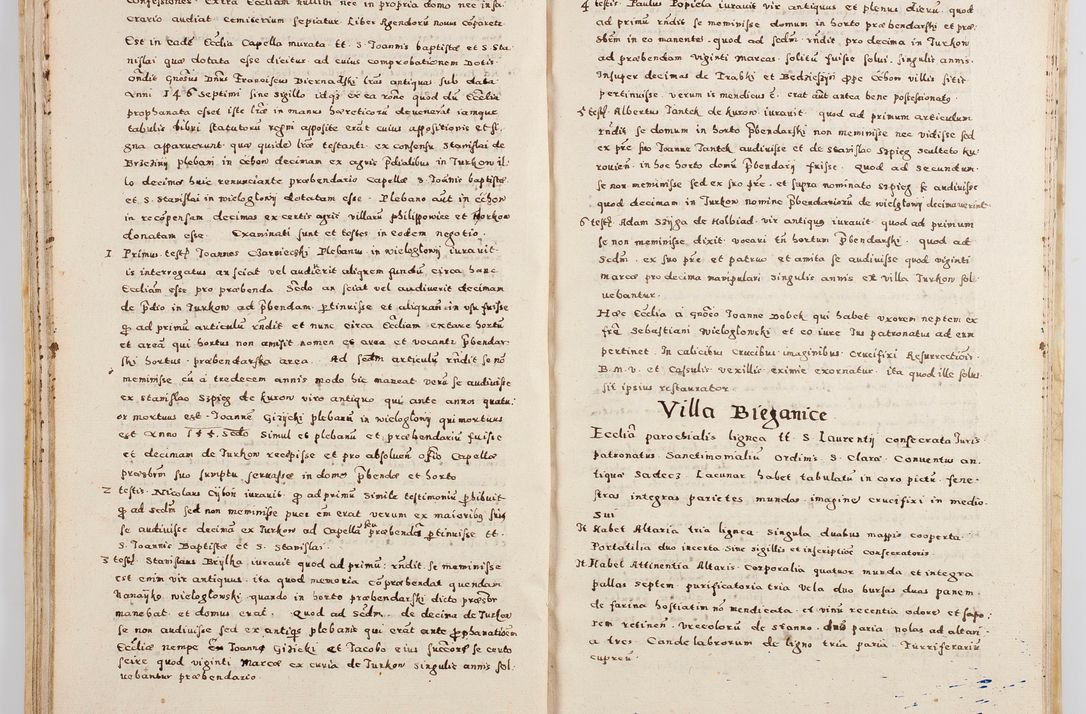 Confessiones extra Eccliam nullibi nec in propria domo nec in
crario audiat Cemiterium sepiatur Liber Agendorũ novus Cõparetur
Est in eadẽ Ecclia Capella murata tt. S. Joannis baptistæ et S. Sta
nislai quæ dotata esse dicitur ad cuius comprobationem Dotis
oñdit Gnosus Dnus Franciscus Biernadzki lras antiquas sub data
Anni 146 septimi sine sigillo idqz ex ea rõne quod dũ Ecclia
prophanata esset iste lræ in manus hæreticorũ devenerãt iamque
tabulis libri statutorũ regni apposite erãt cuius appositionis et si
gna apparuerunt quæ quide lræ testantr ex consensu Stanislai de
Brzeziny plebani in Cchow decimam ex agris Pdialibus in Turkow il
lo decimæ huic renunciante præbendario Capellæ S. Joãnis baptistæ
et S. Stanislai in wieloglowy dotatam esse. Plebano aũt in Cchow
in recõpensam decimas ex certis agris villarũ philippowice et
donatam esse. Examinati sunt et testes in eodem negotio.
1 Primus testis Joannes Czarniecski Plebanus in wieloglowy iuravit
is interrogatus an sciat vel audiverit aliquem fundũ circa hanc
Eccliam esse pro præbenda. Scdo an sciat vel audiverit decimam
de Pdio in Turkow ad pbendam ptinuisse et aliquam in usu fuisse
q ad primũ articulũ rndit et nunc circa Eccliam extare hortũ
et areã qui hortus non amisit nomen et area et vocantr Pbendar
ski hortus præbendarska area. Ad scdm articulũ rndit se nõ
meminisse cũ a tredecem annis modo hic maneat verũ se audivisse
ex stanislao szpieg de kurow viro antiquo qui ante annos quatu
or mortuus est. Joannẽ Gizycki plebanũ in wieloglowy qui mortuus
est Anno 144. Scdo Simul et plebanũ et præbendariũ fuisse
et decimam de Turkow recepisse et pro absolven offio Capellæ
præsbrm suo sumptu servasse in domo pbendæ et horto
2 testis Nicolaus Cybon iuravit q ad primũ simile testimoniũ phibuit
q ad scdm sed non meminisse puer em erat verum ex maioribq suis
se audivisse decimã ex Turkow ad Capellã seu præbendã ptinuisse tt.
S. Joannis Baptistæ et S. Stanislai.
3 testis Stanislaus Brylka iuravit quod ad primũ rndit se meminisse
est enim vir antiquus ita quod memoria cõprabendat quendam
Nanayko wieloglowski quando in horto præbendarski dicto præsbr
manebat et domus erat. Quod ad scdm de decima de Turkow
se non audivisse sed ex antiqs plebanis qui erãt ante pphanationem
Eccliæ nempe Joanne Gizicki et Jacobo eius succorẽ se certo
scire quod viginti marcæ ex curia de Turkow singulis annis sol
vebantur præbendario.
4 testis Paulus Popiela iuravit vir antiquus et plenus dierũ quod
ad primũ rndit se meminisse domum in horto præbendarski et præ
sbrm in eo manentẽ. quod ad scdm rndit pro decima in Turkow
ad præbendam viginti marcas solitũ fuisse solui singulis annis.
Insuper decimas de Trabki et Bedzieszyn ppe Cchow villis sitis
pertinuisse. verum is mendicus ẽ. erat aũt antea bene possessionato
5 testis Albertus Jantek de kurow iuravit. quod ad primum articulum
rndit se domum in horto pbendarski non meminisse nec vidisse sed
ex pre suo Joanne Jantek audivisse et de stanislao szpieg sculteto ku
rovien. in hoc horto domũ pbendarij fuisse. Quod ad secundum
se non meminisse sed ex suo pre et supra nominato szpieg se audivisse
quod decimam in Turkow nomine pbendariorũ de wieloglowy decimaverint
6 testis Adam Szyga de Kolbiad. vir antiquus iuravit quod ad primum
se non meminisse dixit vocari tñ hortum pbendarski. quod ad
scdm. ex suo pre et patruo et amita se audivisse quod viginti
marcæ pro decima manipulari singulis annis ex villa Turkow sol
vebantur.
Hæc Ecclia a gnoso Joanne Dobek qui habet uxorem neptem ex
fre Sebastiani wieloglowski et eo iure Jus patronatus ad eum
pertinet. In calicibus Crucibus imaginibus Crucifixi Resurrectiois
B. M. V. et Casulis vexillis eximie exornatur ita quod ille solus
sit ipsius restaurator.
Villa Biegonice
Ecclia parochialis lignea tt. S. Laurentij consecrata Juris
patronatus Sanctimonialiũ Ordinis S. Claræ Conventus an
tiquæ Sadecz Lacunar habet tabulatũ in coro pictũ fene
stras integras parietes mundos imaginẽ crucifixi in medio
sui
It Habet Altaria tria lignea singula duabus mappis cooperta
Portatilia duo incerta sine sigillis et inscriptioẽ consecratoris
It Habet Attinentia Altaris Corporalia quatuor munda et integra
pallas septem purificatoria tria vela duo bursas duas panem
de farina hostiatim nõ mendicata et vinũ recentia odorẽ et sapo
rem retinen. vrecolorũ de stanno duo paria nolas ad altaria
a tres. Candelabrorum de ligno tria paria Turriferariũ
cupreũ